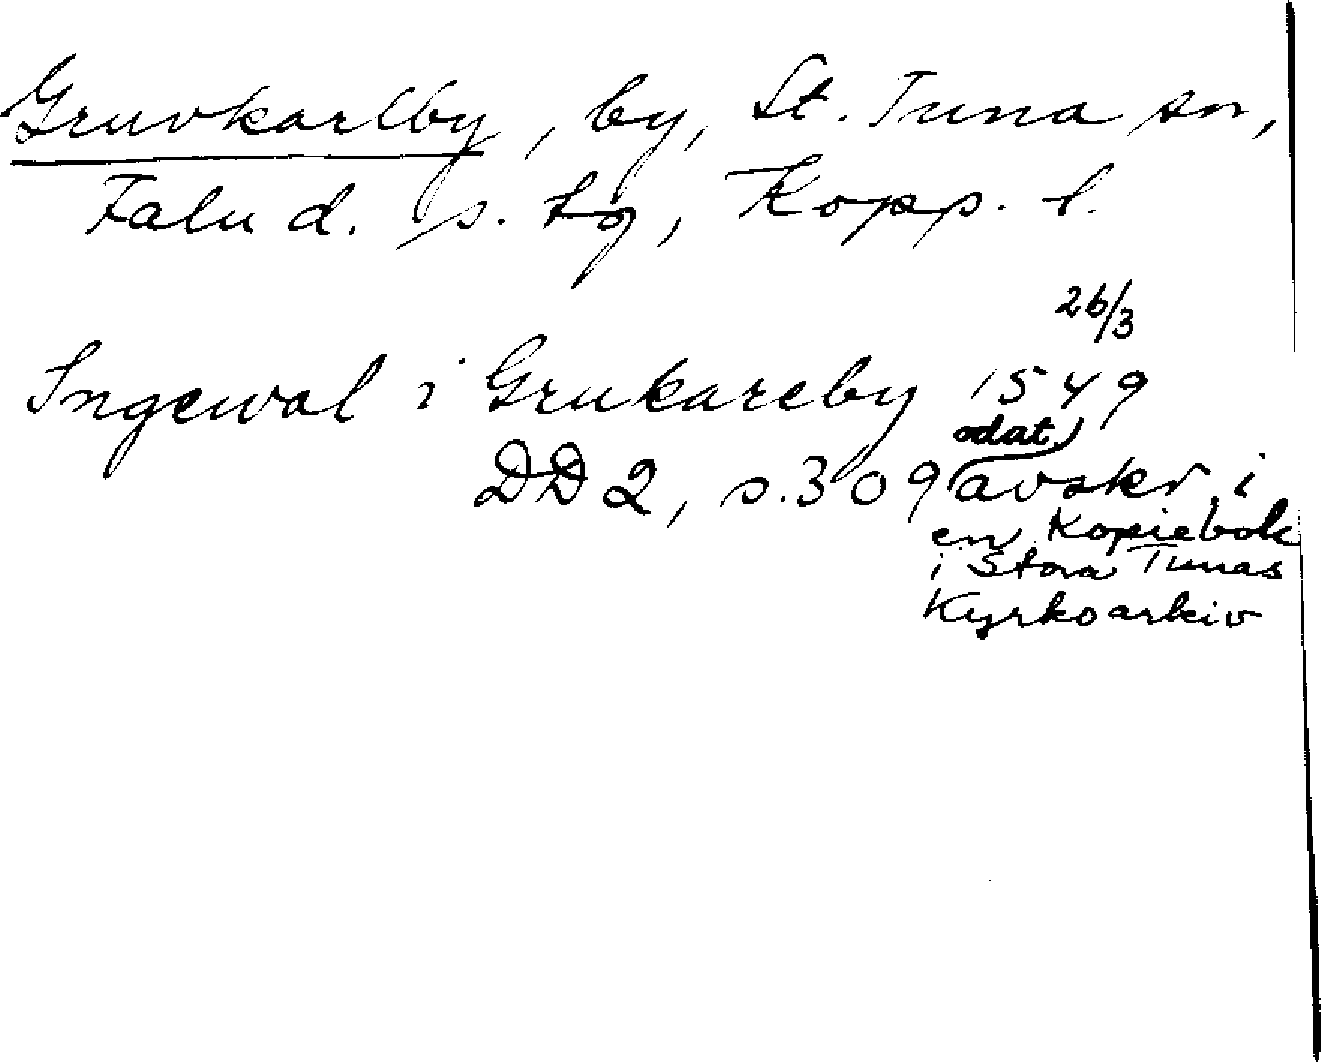 Gruvkarlby, by, St. Tuna sn,
Falu d. s. tg, Kopp. l.
26/3
Ingewal i Grukareby 1549
odat
DD 2, s. 309 avskr. i
en Kopiebok
i Stora Tunas
Kyrkoarkiv